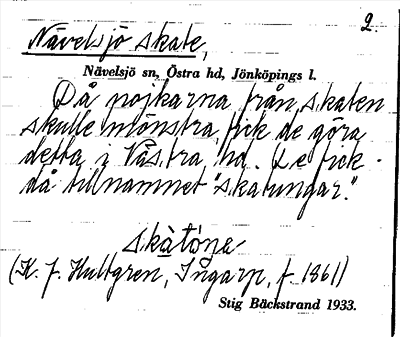 2.
Nävelsjö skate,
Nävelsjö sn, Östra hd, Jönköpings l.
Då pojkarna från skaten
skulle mönstra, fick de göra
detta i Västra hd. De fick
då tillnamnet "skatungar".
skàtóna
(K. J. Hultgren, Ingarp, f. 1861)
Stig Bäckstrand 1933.